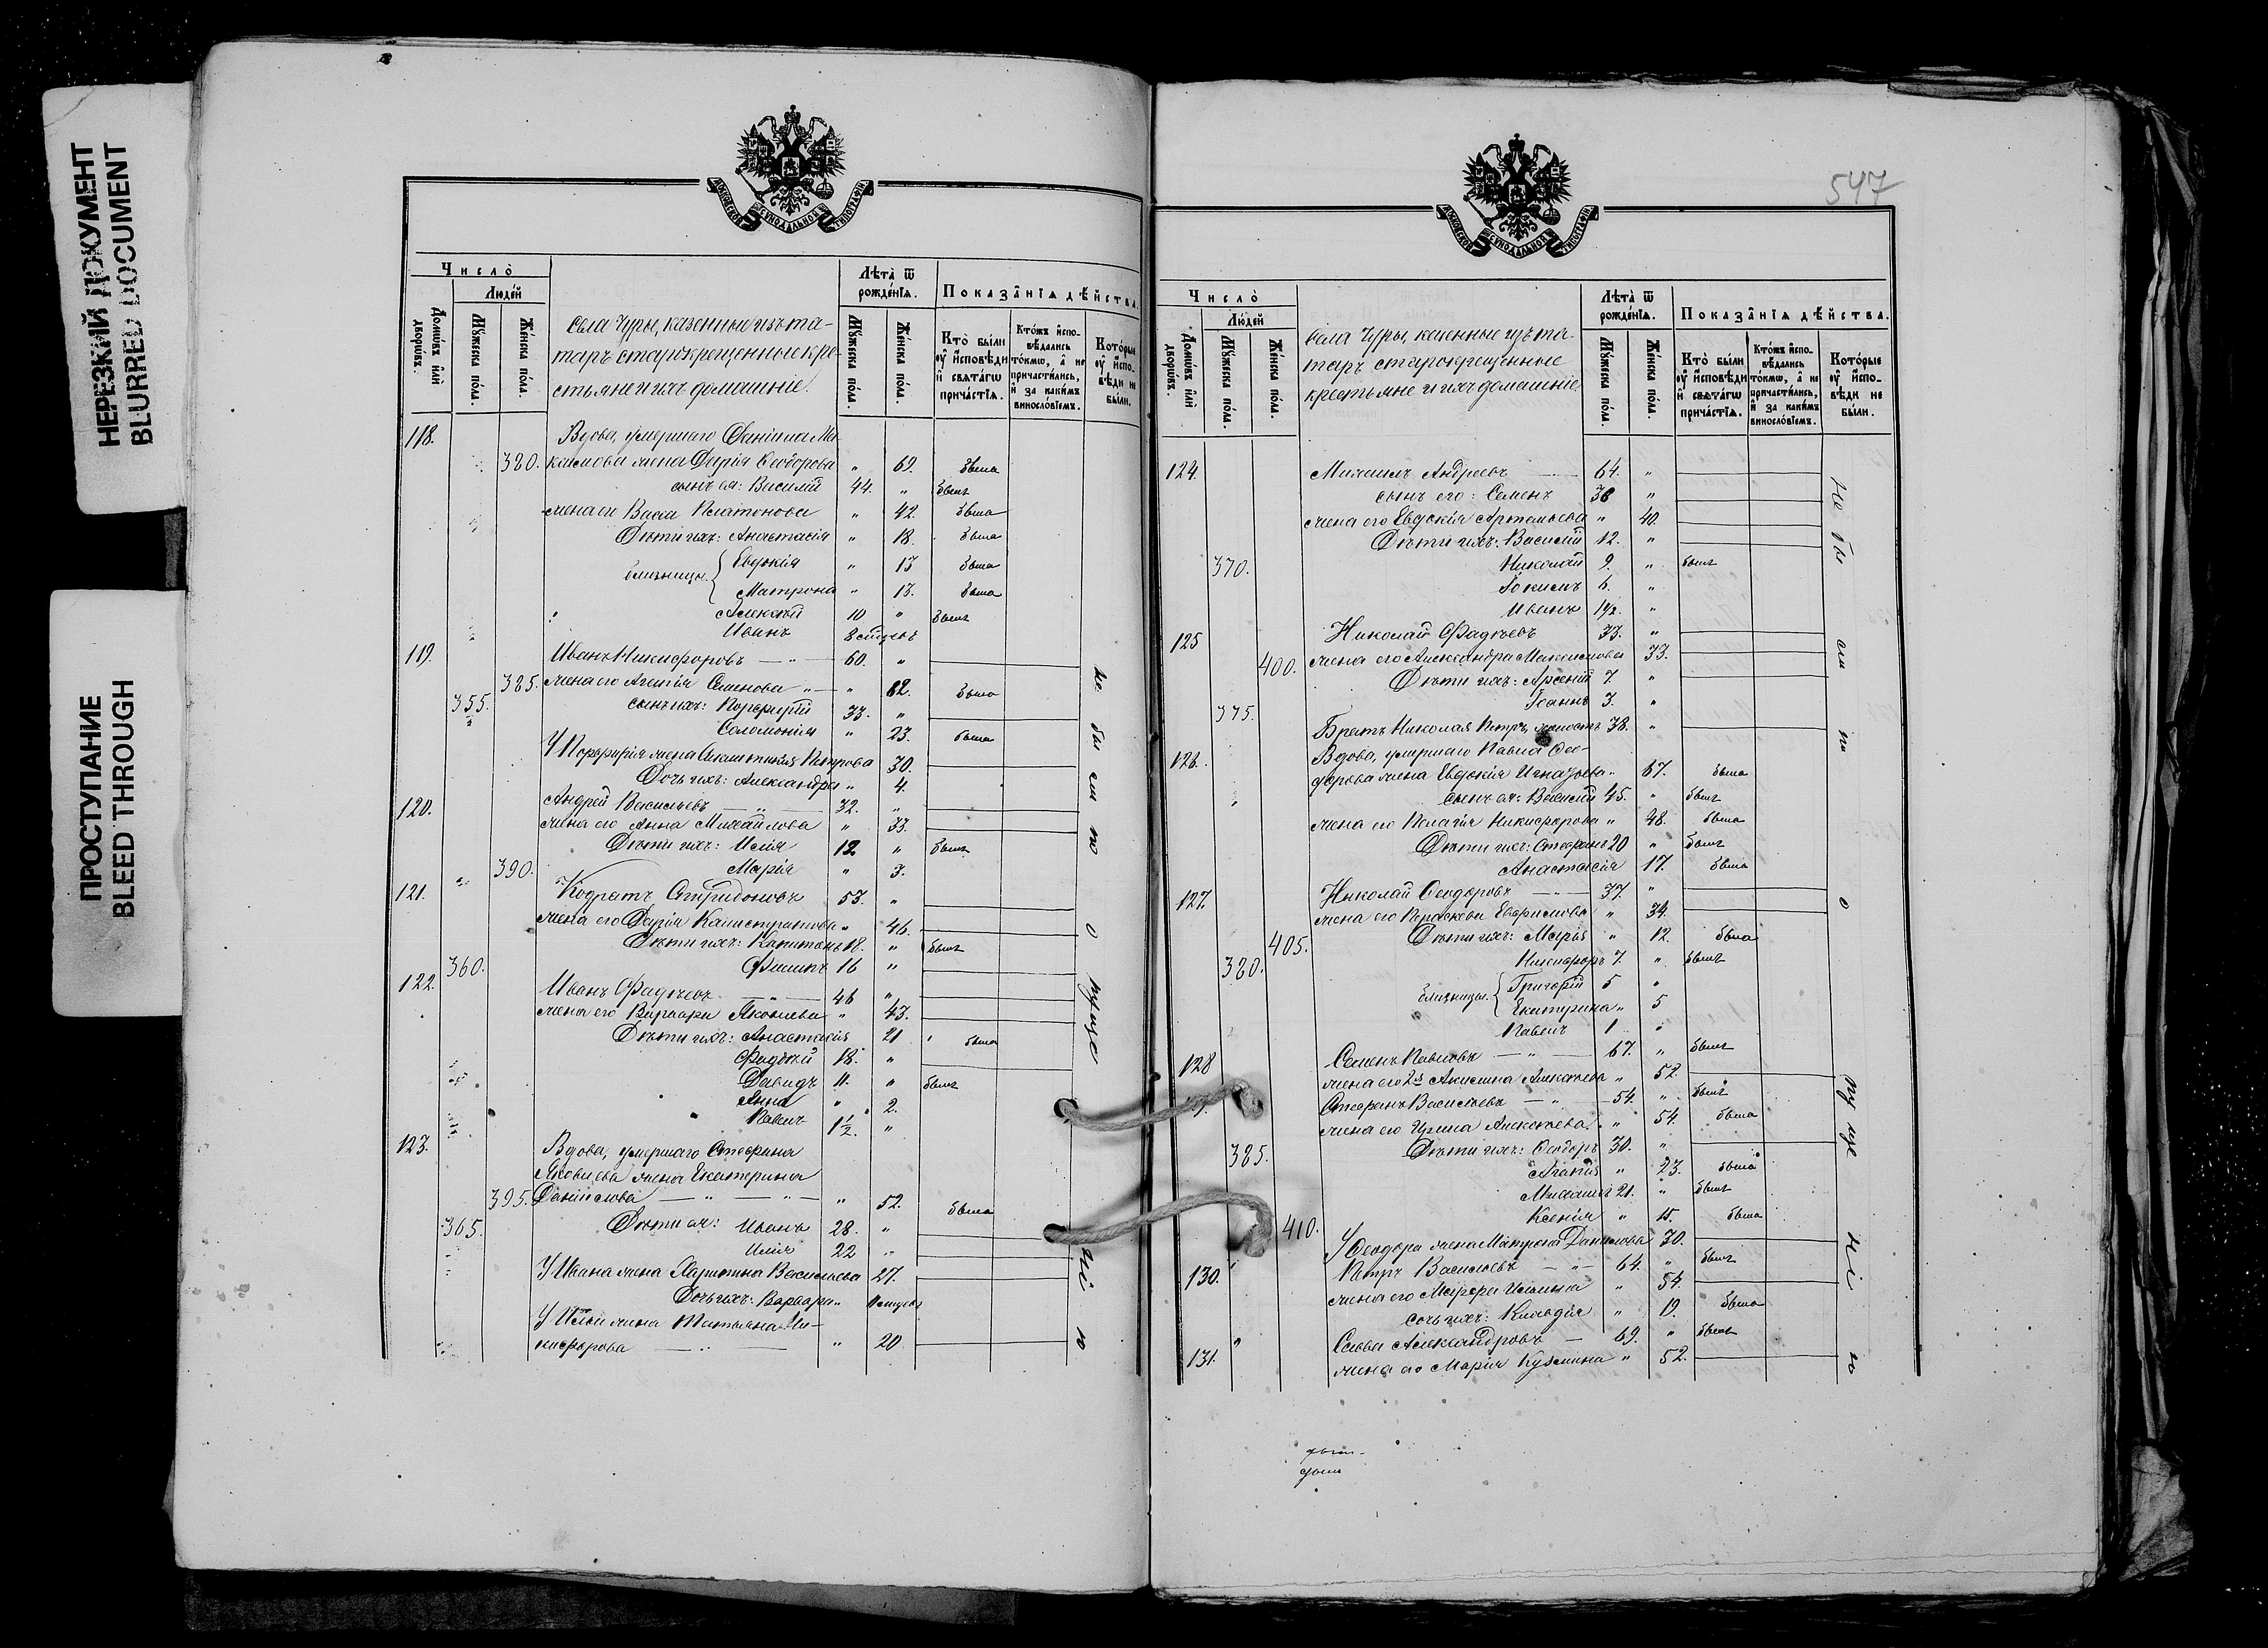 НЕРЕЗКИЙ ДОКУМЕНТ
BLURRED DOCUMENT
ПРОСТУПАНИЕ
BLEED THROUGH
МОСКОВСКОЙ СУНОДАЛЬНОЙ ТИПОГРАФІИ
Число̀
Людéй
Домѡ́въ и҆лѝ дворѡ́въ.
Мꙋ́жеска по́ла.
Же́нска по́ла.
села Чуры, казенные изъ та-
таръ старокрещенные кре-
стьяне и ихъ домашніе.
Лѣ́та ѿ рожде́нїѧ.
Мꙋ́жеска по́ла.
Же́нска по́ла.
Показа̑нїѧ дѣ́йства.
Кто̀ бы́ли ᲂу҆ и҆сповѣди и҆ свѧта́гѡ прича́стїѧ.
Кто́жъ и҆спо- вѣдались то́кмѡ, а҆ не причасти́лись, и҆ за каки́мъ винословїемъ.
Кото́рые ᲂу҆ и҆спо- вѣди не бы́ли.
118. Вдова, умершаго Данiила Ма-
380. ксимова жена Дарія Ѳеодорова " 69. была
сынъ ея: Василій 44. " былъ
жена его Васса Платонова " 42. была
Дѣти ихъ: Анастасія " 18. была
близнецы { Евдокія " 13 была
Матрона " 13. была
Алексѣй 10 " былъ
Иванъ
119. Иванъ Никифоровъ — " — 60. "
385. жена его Агапія Семенова " — " 62. была
355. сынъ ихъ: Порфирій 33. "
Соломонія " 23. была
У Порфирія жена Петрова 30.
Дочь ихъ: Александра " 4.
120. Андрей Васильевъ — " — 32. "
жена его Анна Михайлова " 33.
Дѣти ихъ: Илія 12 " былъ
390. Марія " 3.
121. Кодратъ Спиридоновъ 53. "
жена его Дарія Калистратова " 46.
Дѣти ихъ: Капитонъ 18. " былъ
360. Филипъ 16 "
122. Иванъ Фадѣевъ — " — 46 "
жена его Варвара Яковлева " 43.
Дѣти ихъ: Анастасія 21 " была
Фадѣй 18. "
Давидъ 11. " былъ
Анна " 2.
Павелъ 1½. "
123. Вдова, умершаго Стефана
Яковлева жена Екатерина
395. Данилова — " — " — " 52. была
365. Дѣти ея: Иванъ 28. "
Илія 22 "
У Ивана жена Харитина Васильева 27.
Дочь ихъ: Варвара "
У Иліи жена Татьяна Ни-
кифорова — " — " 20
не были по нужде
547
МОСКОВСКОЙ СУНОДАЛЬНОЙ ТИПОГРАФІИ
Число̀
Людéй
Домѡ́въ и҆лѝ дворѡ́въ.
Мꙋ́жеска по́ла.
Же́нска по́ла.
села Чуры, казенные изъ та-
таръ старокрещенные
крестьяне и ихъ домашніе.
Лѣ́та ѿ рожде́нїѧ.
Мꙋ́жеска по́ла.
Же́нска по́ла.
Показа̑нїѧ дѣ́йства.
Кто̀ бы́ли ᲂу҆ и҆сповѣди и҆ свѧта́гѡ прича́стїѧ.
Кто́жъ и҆спо- вѣдались то́кмѡ, а҆ не причасти́лись, и҆ за каки́мъ винословїемъ.
Кото́рые ᲂу҆ и҆спо- вѣди не бы́ли.
124. Михаилъ Андреевъ — 64. "
сынъ его: Семенъ 38 "
жена его Евдокія Артемьева " 40.
Дѣти ихъ: Василій 12. "
370. Николай 9. " былъ
Іокимъ 6. "
Иванъ 1½. "
125 Николай Фадѣевъ 33. "
400. жена его Александра Максимова 33.
Дѣти ихъ: Арсеній 7. "
375. Іоаннъ 3. "
Братъ Николая Петръ, холостъ 38. "
126. Вдова, умершаго Павла Ѳео-
дорова жена Евдокія Игнатьева " 67. была
сынъ ея: Василій 45. " былъ
жена его Пелагія Никифорова " 48. была
Дѣти ихъ: Стефанъ 20 " былъ
Анастасія 17. была
127. Николай Ѳеодоровъ — " — 37. "
жена его Параскева Евфимова " 34.
405. Дѣти ихъ: Марья " 12. была
380. Никифоръ 7. " былъ
близнецы. { Григорій 5 "
Екатерина " 5
Павелъ 1 "
128 Семенъ Павловъ — " — 67. " былъ
жена его 2я Акилина Алексѣева " 52.
Стефанъ Васильевъ — " — 54. " былъ
жена его Ирина Алексѣева. " 54. была
385. Дѣти ихъ: Ѳеодоръ 30. "
Агапія " 23. была
Михаилъ 21. " былъ
410. Ксенія " 15. была
У Ѳеодора жена Матрона Данилова 30.
130. Петръ Васильевъ — " — 64. " былъ
жена его Марфа Ильина " 54.
дочь ихъ: Клавдія " 19. была
131. Савва Александровъ — 69. " былъ
жена его Марія Кузмина " 52.